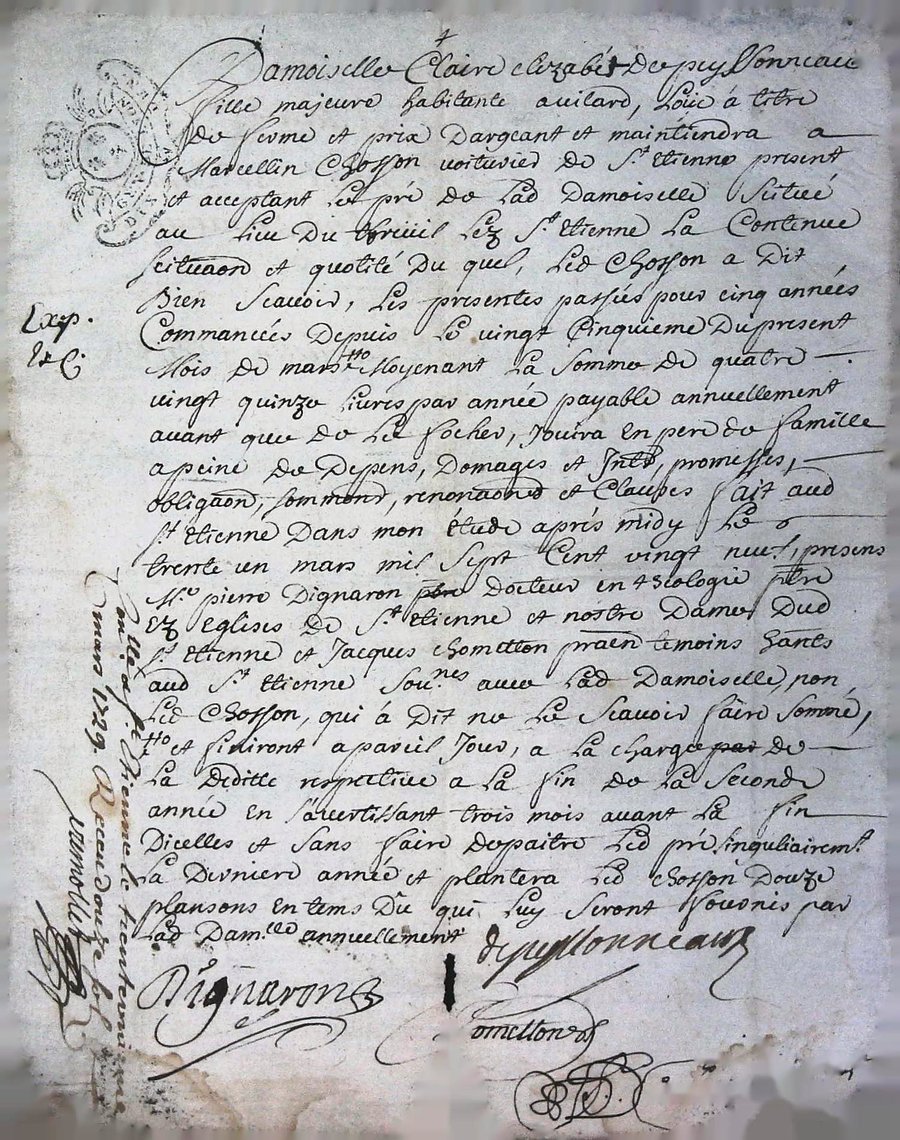 Damoiselle Claire elizabét De peyssonneaux
fille majeure habitante auilard, Loüe á titre
de ferme et prix Dargeant et maintiendra a
Marcellin Chosson voiturier de St. Etienne present
et acceptant Le pré de Lad Damoiselle Scitué
au Lieu Du Lez St. Etienne La Contenue
scituaon et quotité Du quel, Led Chosson a Dit
Bien Scauoir, Les presentes passées pour cinq années
Commancées Depuis Le vingt Cinquieme Du present
Mois de mars Moyenant La Somme de quatre
vingt quinze Liures par année payable annuellement
auant que de Le focher, Jouira En pere de famille
a peine de Depens, Domages et Intts, promesses,
obligaon, sommond, renonaoned et Clauses fait aud
St. etienne Dans mon étude aprés midy Le
trente un mars mil Sept Cent vingt neuf, presens
Mre pierre Dignaron ptre docteur en théologie ptre
Ez Eglises de St. Etienne et nostre Dame Dud
St. etienne et Jacques chometton praen temoins hants
aud St. etienne Sou.nes auec Lad Damoiselle, non
Led Chosson, qui á Dit ne Le Scauoir faire Sommé,
tto et finiront a pareil Jour, a La charge par de
La Deditte respective a La fin de La Seconde
année en s'auertissant trois mois auant La fin
Dicelles et Sans faire depaitre Led pré singuliairemt.
La Derniere année et plantera Led chosson Douze
plansons En tems Du qui Luy Seront fournis par
Lad Dam.lle annuellement
depeyssonneaux
Dignaron
Chometton
Exp.
Con.lle a St. Etienne le trente vnieme
mars 1729. Receu douze sols